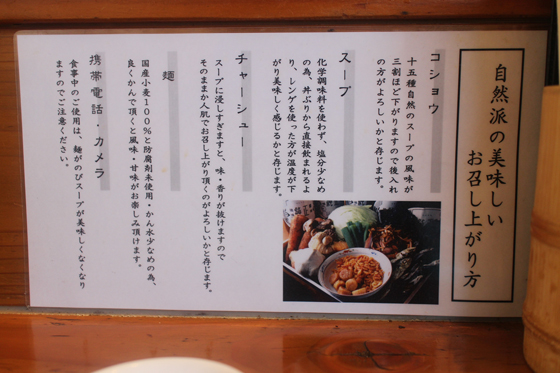 自然派の美味しい
お召し上がり方
コショウ
十五種自然のスープの風味が
三割ほど下がりますので後入れ
の方がよろしいかと存じます。
スープ
化学調味料を使わず、塩分少なめ
の為、丼ぶりから直接飲まれるよ
り、レンゲを使った方が温度が下
がり美味しく感じるかと存じます。
チャーシュー
スープに浸しすぎますと、味・香りが抜けますので
そのままか人肌でお召し上がり頂くのがよろしいかと存じます。
麺
国産小麦100%と防腐剤未使用・かん水少なめの為、
良くかんで頂くと風味・甘味がお楽しみ頂けます。
携帯電話・カメラ
食事中のご使用は、麺がのびスープが美味しくなくなり
ますのでご注意ください。